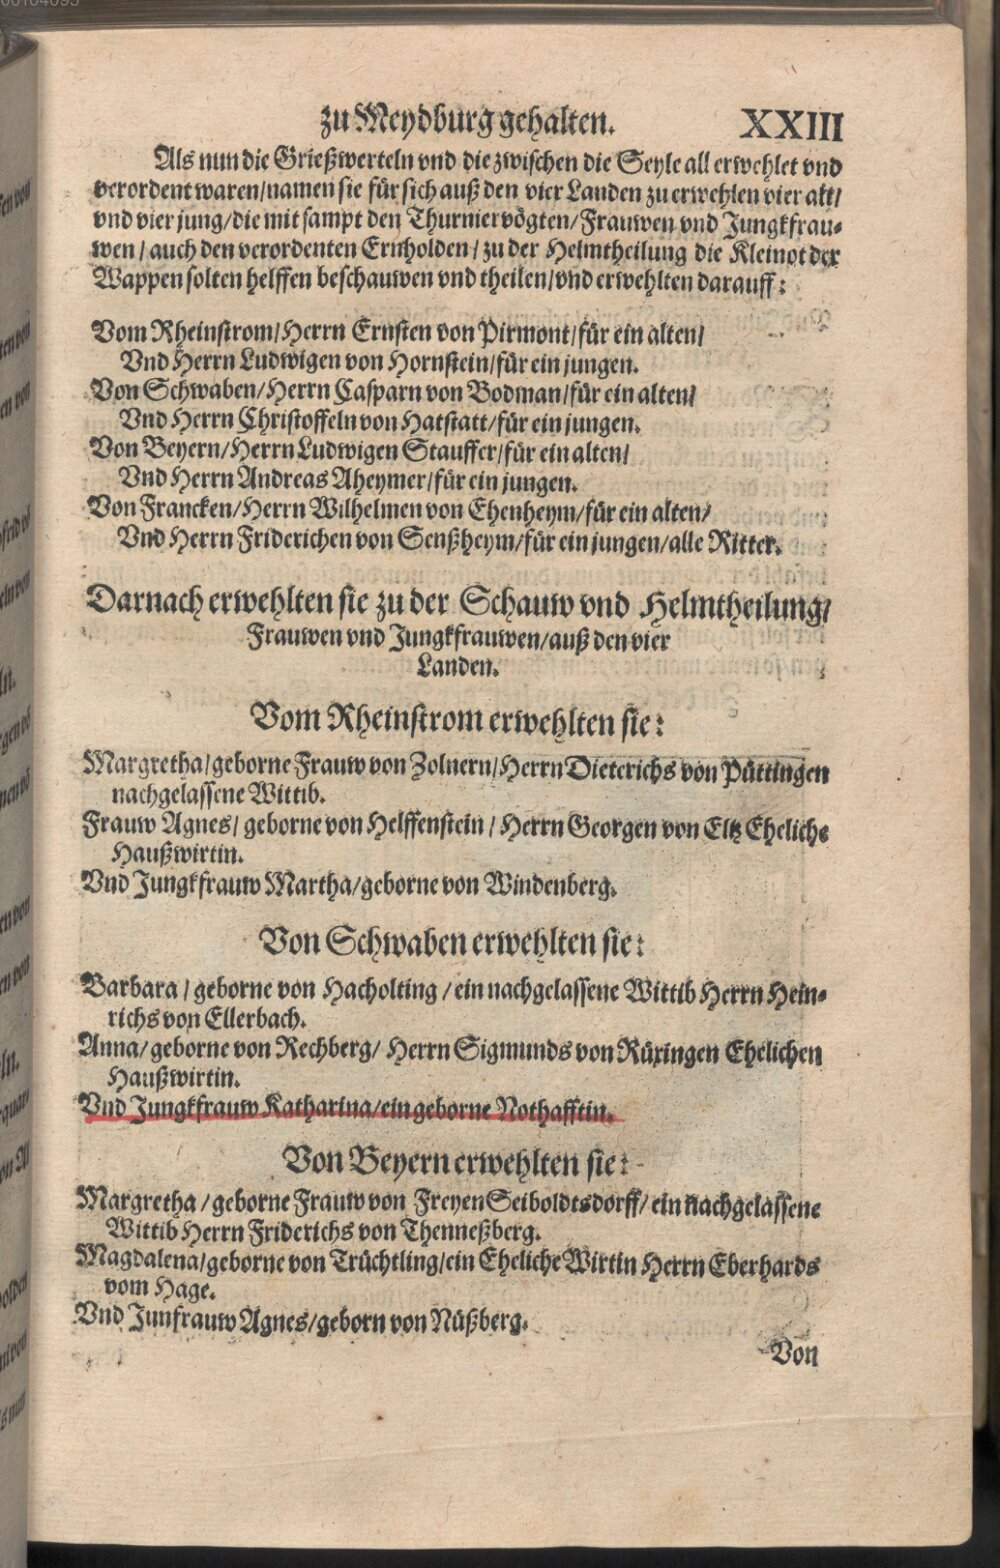 zu Meydburg gehalten. XXIII
Als nun die Grießwerteln vnd die zwischen die Seyle all erwehlet vnd
verordent waren/namen sie für sich auß den vier Landen zu erwehlen vier alt/
vnd vier jung/die mit sampt den Thurniervögten/Frauwen vnd Jungkfrau-
wen/auch den verordenten Ernholden/zu der Helmtheilung die Kleinot der
Wappen solten helffen beschauwen vnd theilen/vnd erwehlten darauff:
Vom Rheinstrom/Herrn Ernsten von Pirmont/für ein alten/
Vnd Herrn Ludwigen von Hornstein/für ein jungen.
Von Schwaben/Herrn Casparn von Bodman/für ein alten/
Vnd Herrn Christoffeln von Hatstatt/für ein jungen.
Von Beyern/Herrn Ludwigen Stauffer/für ein alten/
Vnd Herrn Andreas Aheymer/für ein jungen.
Von Francken/Herrn Wilhelmen von Ehenheym/für ein alten/
Vnd Herrn Friderichen von Senßheym/für ein jungen/alle Ritter.
Darnach erwehlten sie zu der Schauw vnd Helmtheilung/
Frauwen vnd Jungkfrauwen/auß den vier
Landen.
Vom Rheinstrom erwehlten sie:
Margretha/geborne Frauw von Zolnern/Herrn Dieterichs von Püttingen
nachgelassene Wittib.
Frauw Agnes/geborne von Helffenstein/Herrn Georgen von Eltz Ehelichs
Haußwirtin.
Vnd Jungkfrauw Martha/geborne von Windenberg.
Von Schwaben erwehlten sie:
Barbara/geborne von Hacholting/ein nachgelassene Wittib Herrn Hein-
richs von Ellerbach.
Anna/geborne von Rechberg/Herrn Sigmunds von Rüxingen Ehelichen
Haußwirtin.
Vnd Jungkfrauw Katharina/ein geborne Nothafftin.
Von Beyern erwehlten sie:
Margretha/geborne Frauw von Freyen Seiboldtsdorff/ein nachgelassene
Wittib Herrn Friderichs von Thenneßberg.
Magdalena/geborne von Trüchtling/ein Eheliche Wirtin Herrn Eberhards
vom Hage.
Vnd Junfrauw Agnes/geborn von Nüßberg.
Von